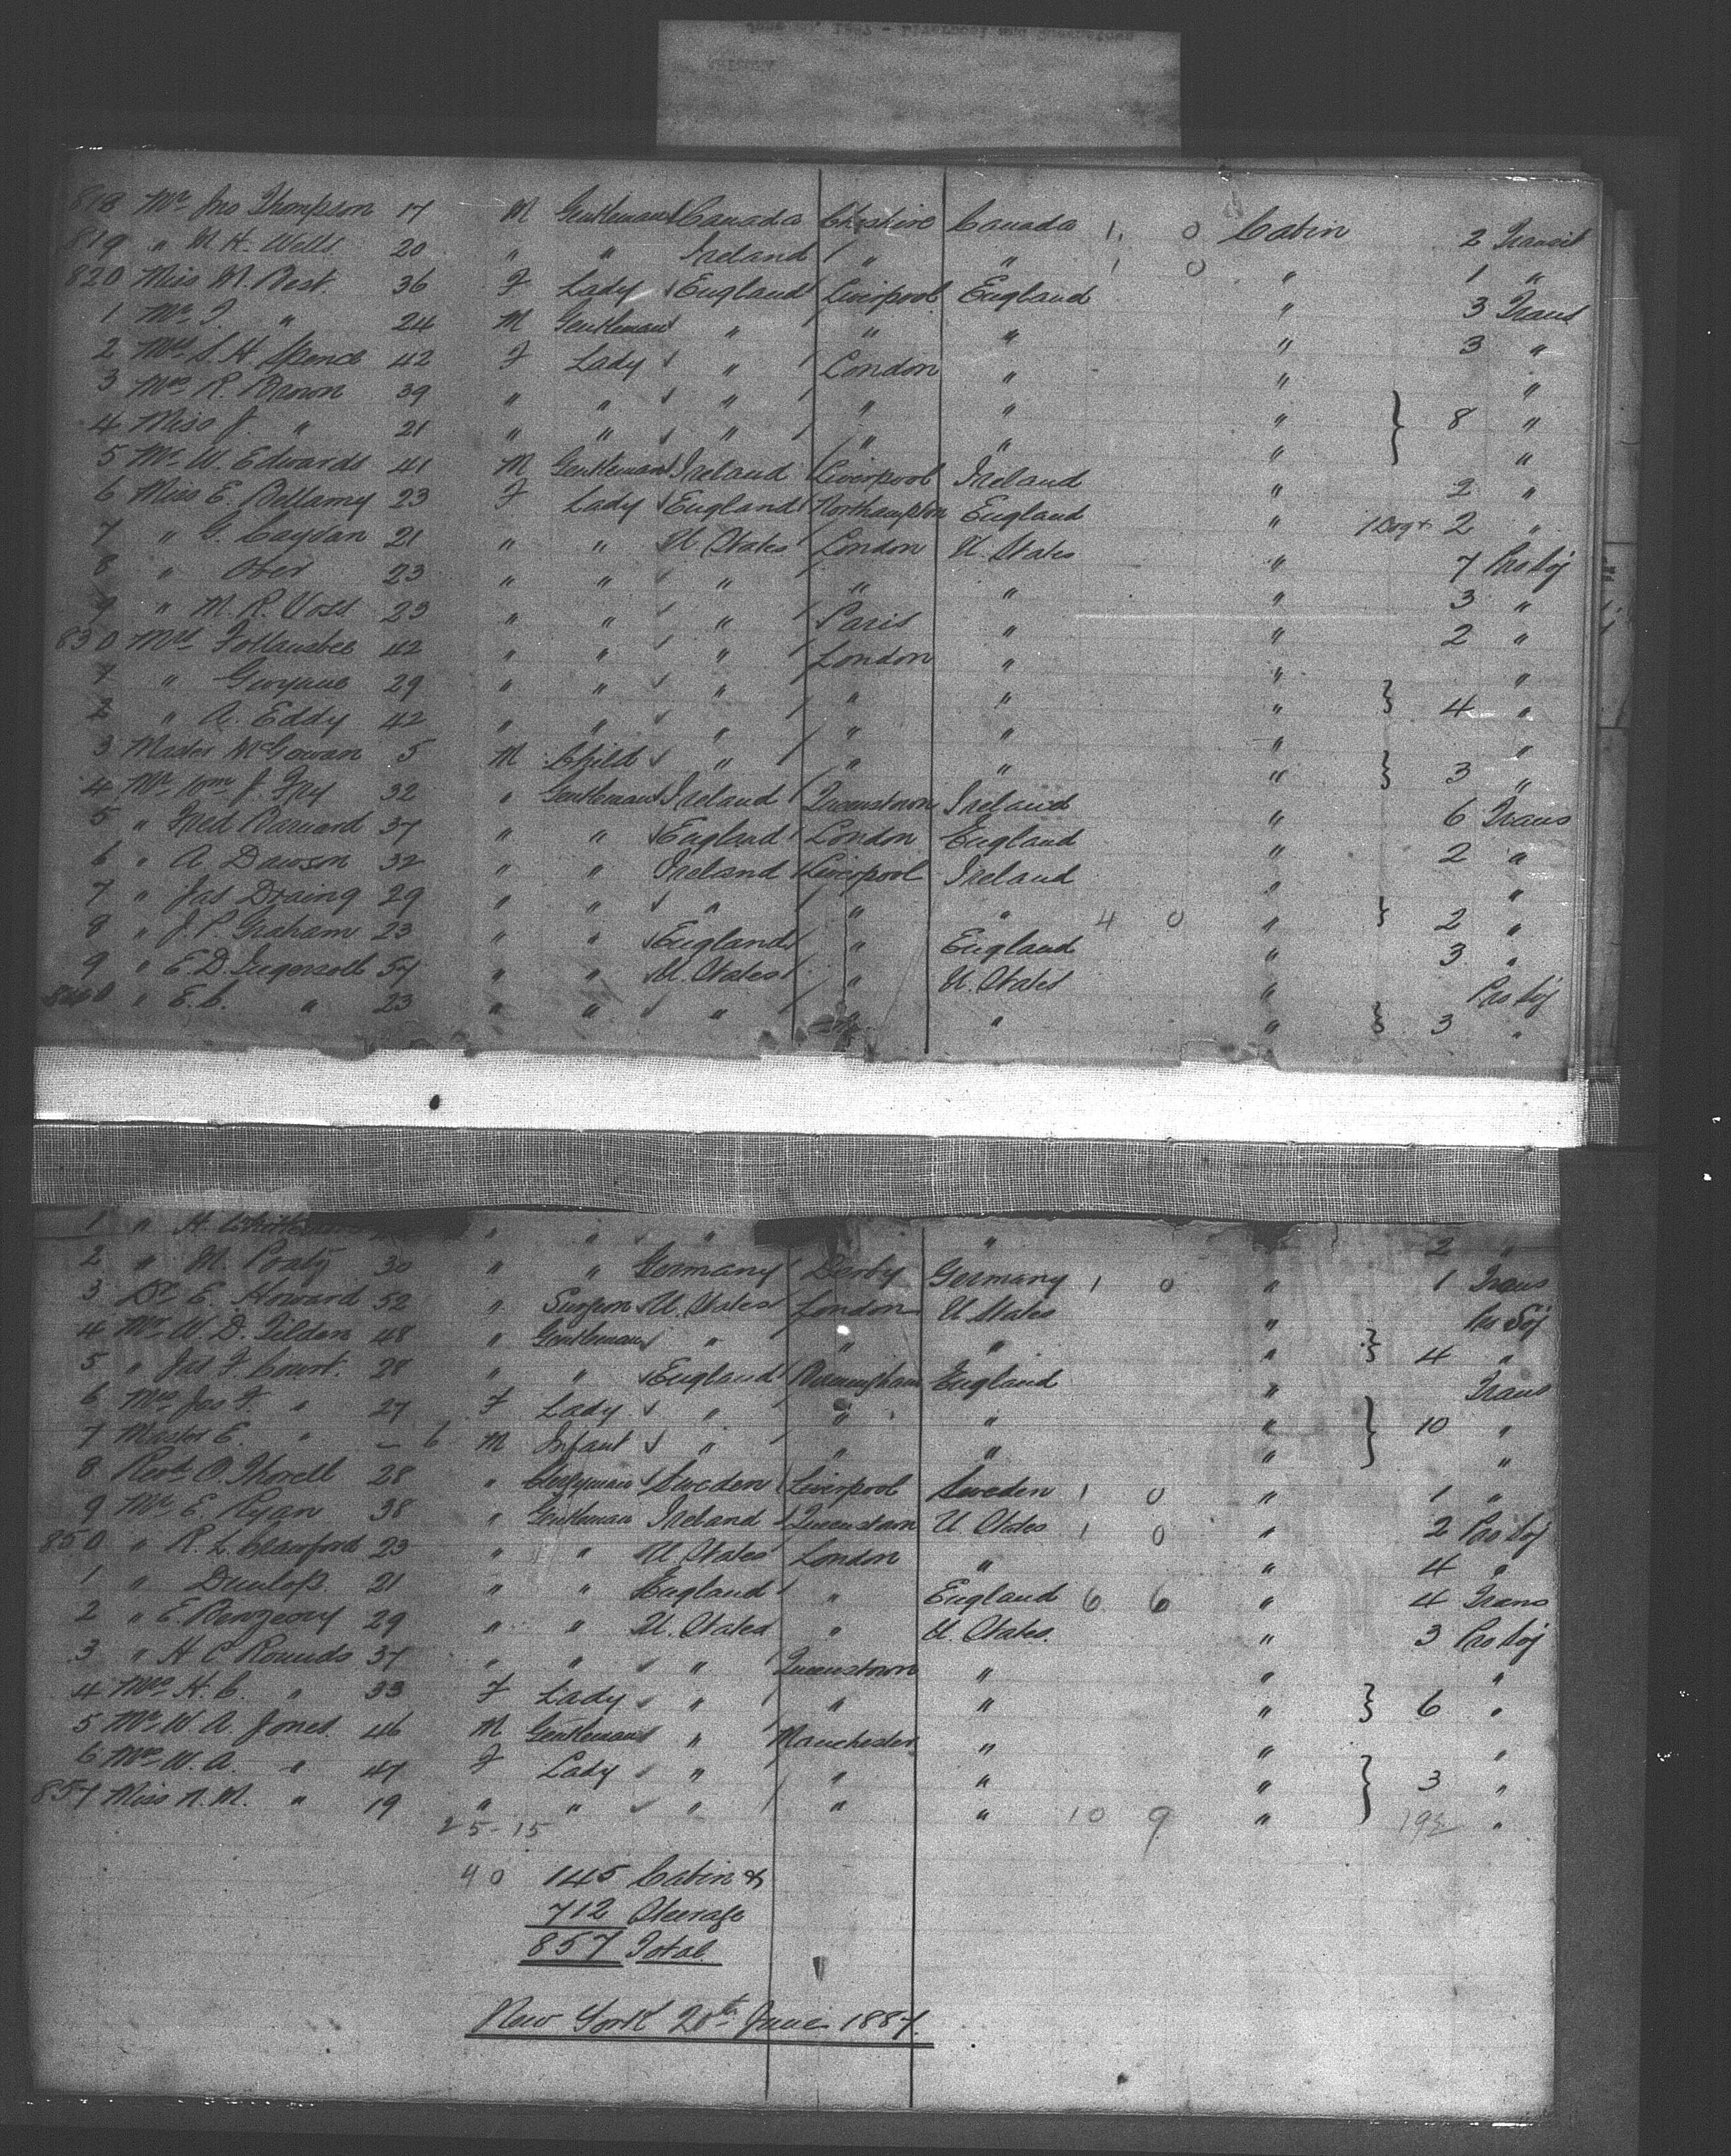 818 Mr Jno Thompson 17 M Gentleman Canada Cheshire Canada 1 0 Cabin 2 Transit
819 " M. H. Wells 20 " " Ireland " " 1 0 " 1 "
820 Miss M. Best 36 F Lady England Liverpool England " 3 Trans
1 Mr J. " 24 M Gentleman " " " " 3 "
2 Mrs S. H. Spence 42 F Lady " London " " "
3 Mrs R. Brown 39 " " " " " " } 8 "
4 Miss J. " 21 " " " " " " "
5 Mr W. Edwards 41 M Gentleman Ireland Liverpool Ireland " 2 "
6 Miss E. Bellamy 23 F Lady England Northampton England " 1 Dog + 2 "
7 " G. Cayvan 21 " " U. States London U. States " 7 Pro Soj
8 " Ober 23 " " " " " " 3 "
9 " M. R. Voss 23 " " " Paris " " 2 "
830 Mrs Follansbee 42 " " " London " " "
1 " Gwynne 29 " " " " " " } 4 "
2 " A. Eddy 42 " " " " " " "
3 Master McGowan 5 M Child " " " " } 3 "
4 Mr Wm J. Fry 32 " Gentleman Ireland Queenstown Ireland " 6 Trans
5 " Fred Barnard 37 " " England London England " 2 "
6 " A. Dawson 32 " " Ireland Liverpool Ireland " "
7 " Jas Draing 29 " " " " " 4 0 " } 2 "
8 " J. P. Graham 23 " " England " England " 3 "
9 " E. D. Ingersoll 54 " " U. States " U. States " Pro Soj
840 " E. C. " 23 " " " " " " } 3 "
1 " H. " " " " 2 "
2 " M. 30 " " Germany Derby Germany 1 0 " 1 Trans
3 Dr E. Howard 52 " Surgeon U. States London U States " Pro Soj
4 Mr W. D. Tilden 48 " Gentleman " " " " } 4 "
5 " Jas F. Court. 28 " " England Birmingham England " Trans
6 Mrs Jas F. " 27 F Lady " " " " } 10 "
7 Master E. " – 6 M Infant " " " " "
8 Revd O. Thorell 28 " Clergyman Sweden Liverpool Sweden 1 0 " 1 "
9 Mr E. Ryan 38 " Gentleman Ireland Queenstown U States 1 0 " 2 Pro Soj
850 " R. L. Crawford 23 " " U. States London " " 4 "
1 " Dunlop. 21 " " England " England 6 6 " 4 Trans
2 " E. Benzeony 29 " " U. States " U. States. " 3 Pro Soj
3 " H C Rounds 37 " " " Queenstown " " "
4 Mrs H. C. " 33 F Lady " " " " } 6 "
5 Mr W. A. Jones. 46 M Gentleman " Manchester " " "
6 Mrs W. A. " 47 F Lady " " " " } 3 "
857 Miss N. M. " 19 " " " " " 10 9 " "
25-15
40 145 Cabin &
712 Steerage
857 Total
New York 20th June 1887.